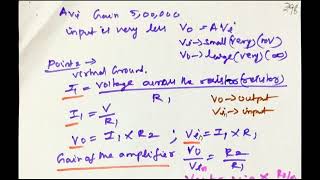 Avi Gain 5,00,000
input is very less Vo = A Vi
Vi → small (very) (mV)
Vo → large (very) (∞)
Point 2 →
virtual Ground.
I1 = voltage across the resistor (resistor)
R1
Vo → output
Vin → input
I1 = V / R1
Vo = I1 × R2 ; Vin = I1 × R1
Gain of the amplifier Vo / Vin = R2 / R1